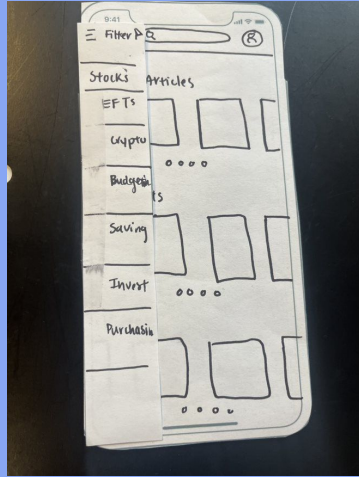 9:41
Filter
R
Stocks
Articles
EFTs
Crypto
Budgetin
ts
Saving
Invest
Purchasin